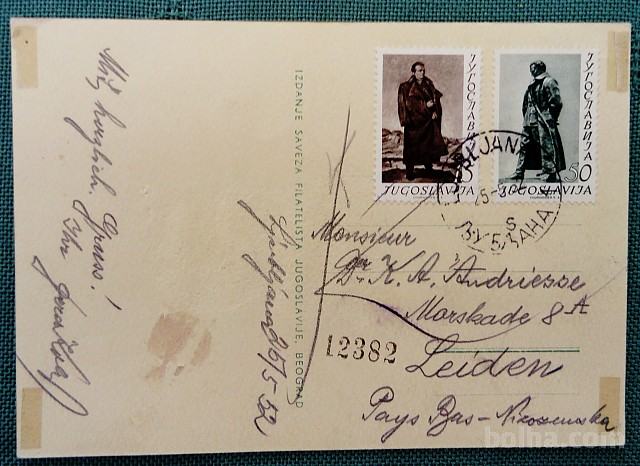 Mit herzlich. Gruss!
Ihr
IZDANJE SAVEZA FILATELISTA JUGOSLAVIJE, BEOGRAD
Ljubljana 25/5 52
ЈУГОСЛАВИЈА
JUGOSLAVIJA
ЈУГОСЛАВИЈА
50
JUGOSLAVIJA
LJUBLJANA
Monsieur
Dr. K. A. Andriesse
Morskade 8 A
12382
Leiden
Pays Bas - Nizozemska
bolha.com